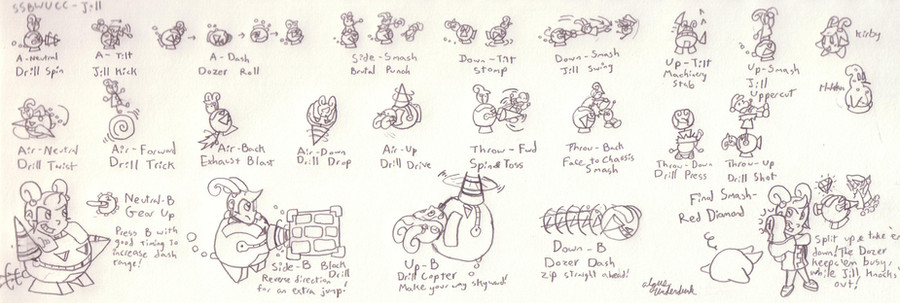 SSBWUCC - Jill
A-Neutral
Drill Spin
A-Tilt
Jill Kick
A-Dash
Dozer Roll
Side-Smash
Brutal Punch
Down-Tilt
Stomp
Down-Smash
Jill Swing
Up-Tilt
Machinery
Stab
Up-Smash
Jill
Uppercut
Kirby
Air-Neutral
Drill Twist
Air-Forward
Drill Trick
Air-Back
Exhaust Blast
Air-Down
Drill Drop
Air-Up
Drill Drive
Throw-Fwd
Spin & Toss
Throw-Back
Face to Chassis
Smash
Throw-Down
Drill Press
Throw-Up
Drill Shot
Neutral-B
Gear Up
Press B with
good timing to
increase dash
range!
Side-B Block
Drill
Reverse direction
for an extra jump!
Up-B
Drill Copter
Make your way skyward!
Down-B
Dozer Dash
Zip straight ahead!
Final Smash-
Red Diamond
Split up & take 'em
down! The Dozer
keeps 'em busy,
while Jill knocks 'em
out!